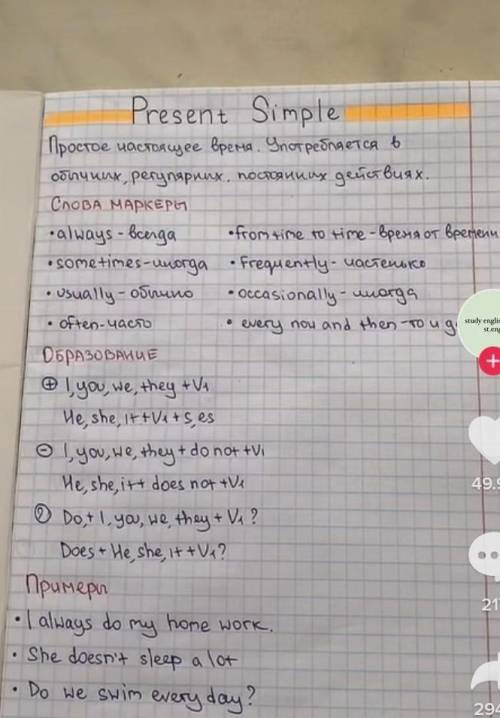 Present Simple
Простое настоящее время. Употребляется в
обычних, регулярних, постоянних действиях.
Слова маркеры
• always - всегда • from time to time - время от времени
• sometimes - иногда • frequently - частенько
• usually - обычно • occasionally - иногда
• often - часто • every now and then - то и д
study englis
st.eng
Образование
+ I, you, we, they + V1
He, she, it + V1 + s, es
49.9
- I, you, we, they + do not + V1
He, she, it + does not + V1
? Do, + I, you, we, they + V1 ?
Does + He, she, it + V1 ?
217
Примеры
• I always do my home work.
• She doesn't sleep a lot
• Do we swim every day?
294